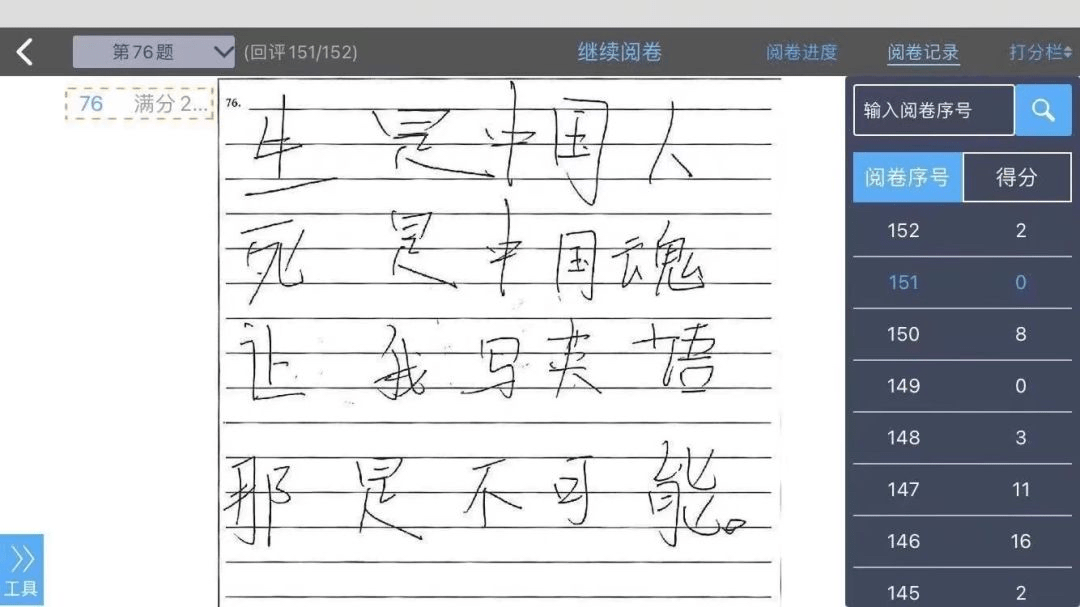 第76题
(回评151/152)
继续阅卷
阅卷进度
阅卷记录
打分栏
76 满分2...
76.
生是中国人
死是中国魂
让我写英语
那是不可能。
输入阅卷序号
阅卷序号 得分
152 2
151 0
150 8
149 0
148 3
147 11
146 16
145 2
工具